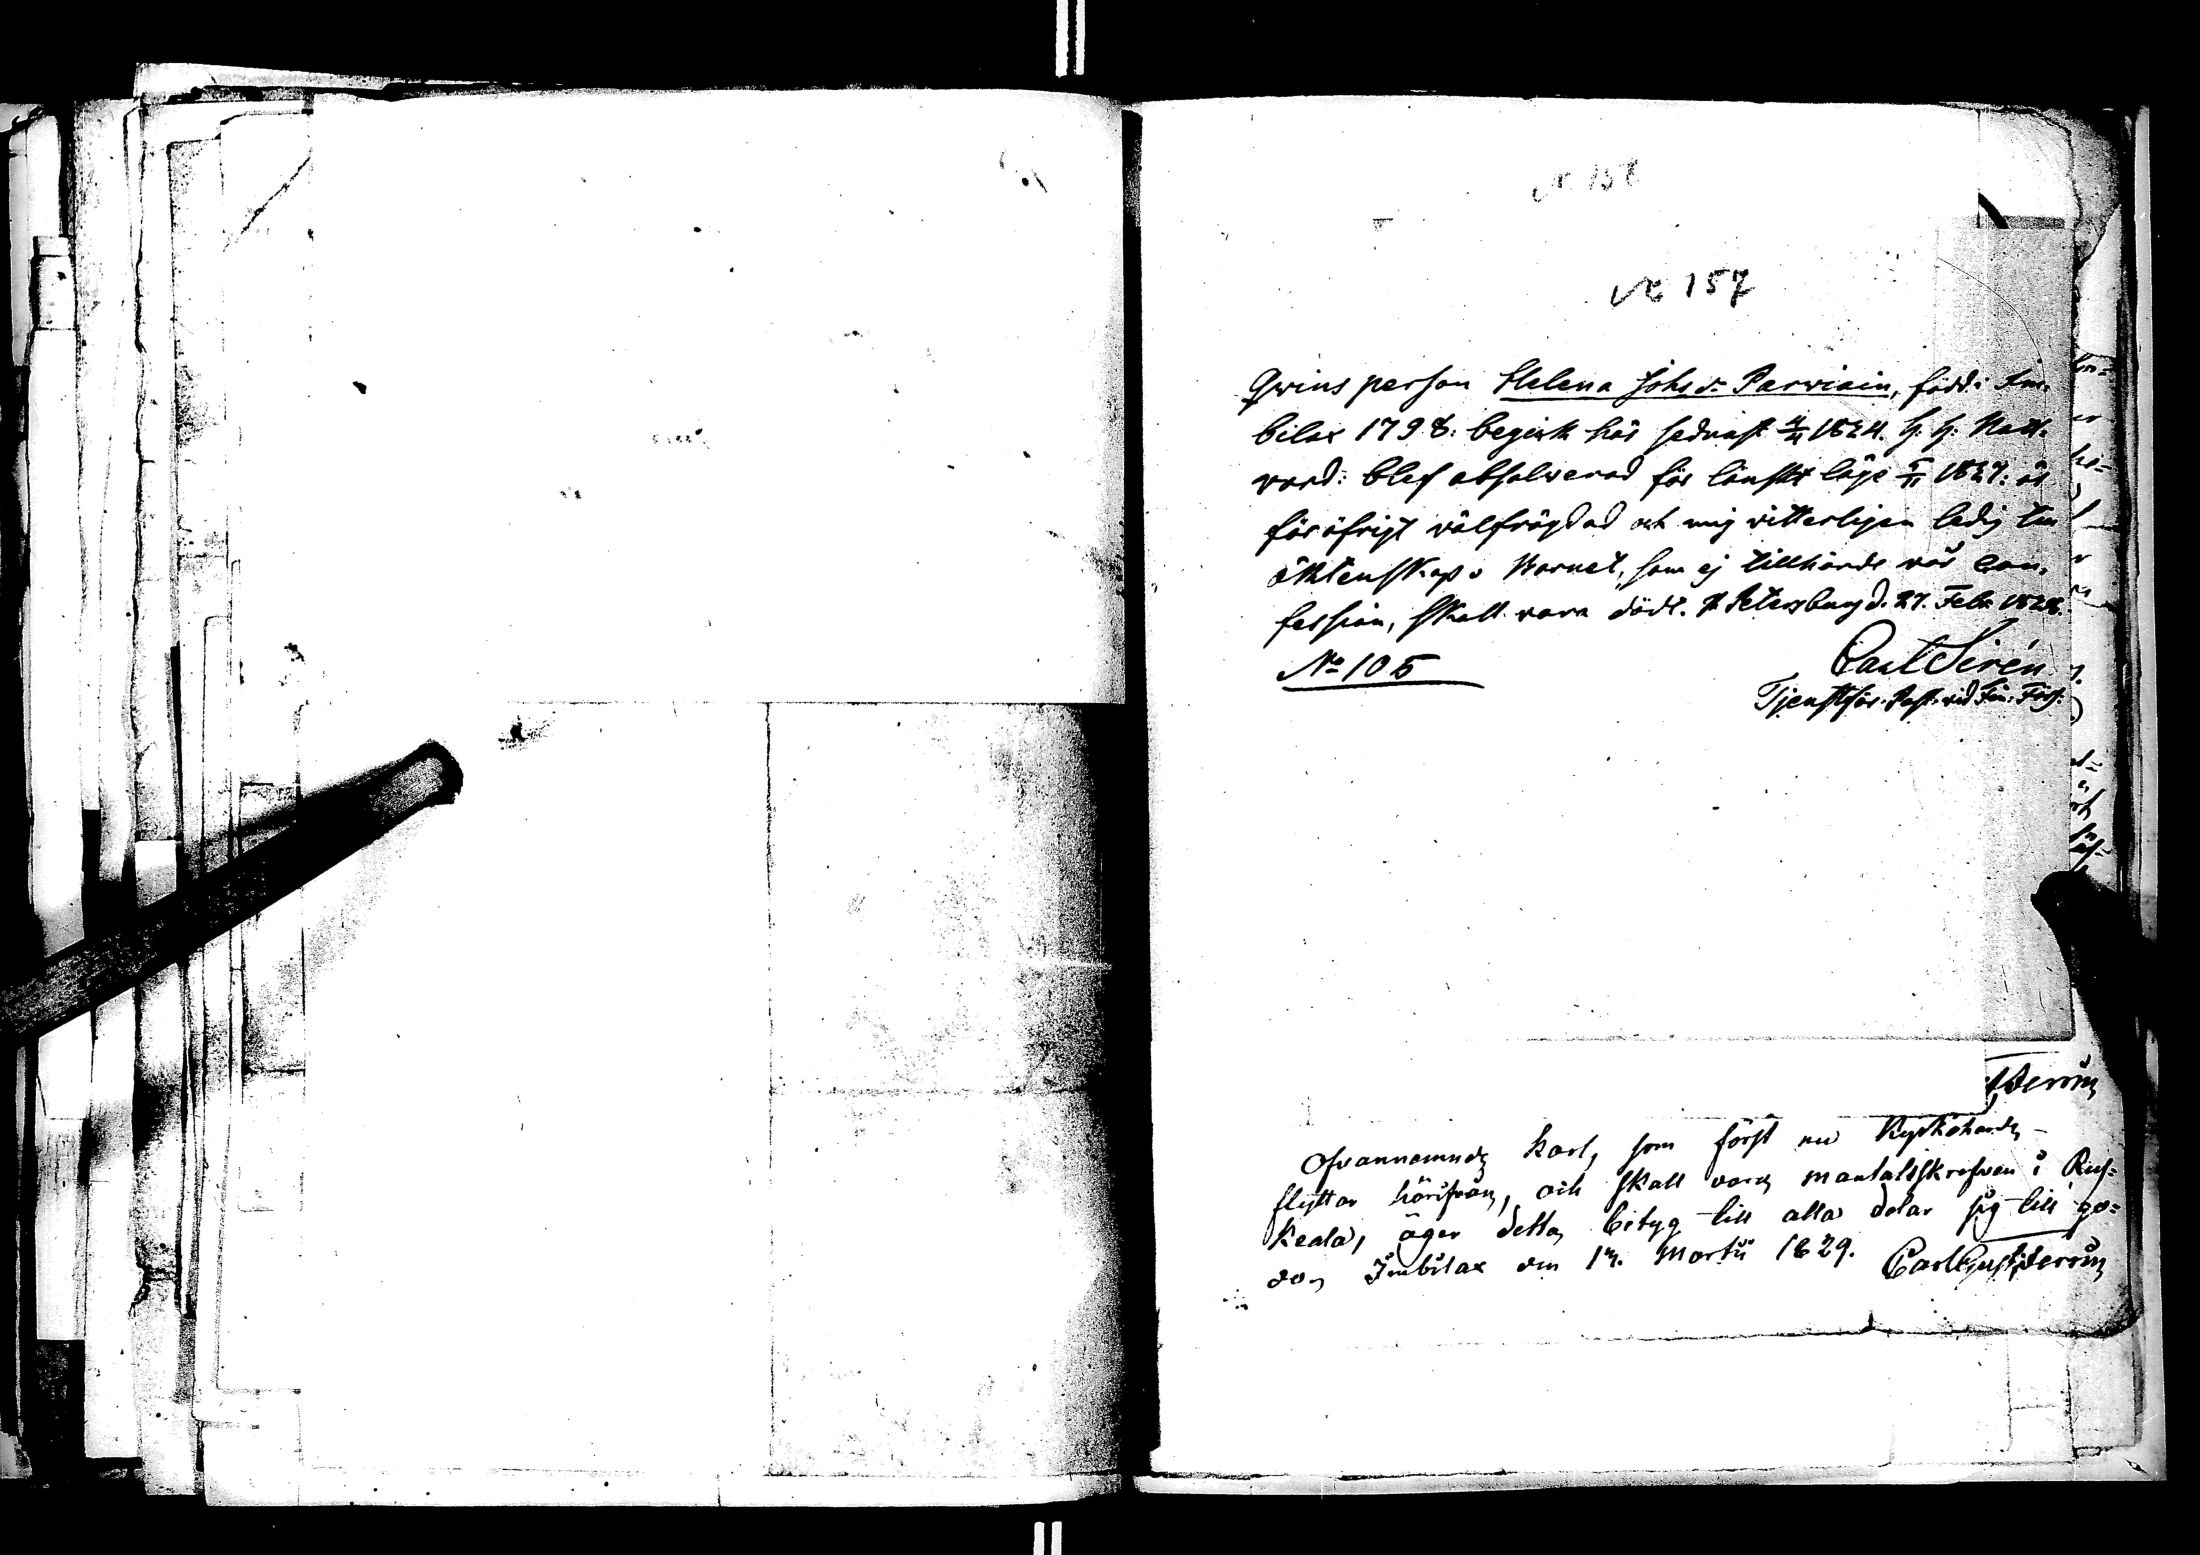 № 157
Qvins person Helena Johs dr Parviain, född i Im-
bilax 1798: begick här sednast 1824. H: H: Natt-
vard: blef absolverad för lönskt läge 1827: är
föröfrigt välfrägdad och mig vitterligen ledig till
äktenskap. Barnet, som ej tillhörde vår con-
fession, skall vara dödt. St Petersburg d. 27. Febr 1828.
№ 105
Carl Sirén
Tjenstför. Past. vid Fin. Förs.
Ofvannemnde Karl, som först nu
flyttar härifrån, och skall vara mantalsskrefven i Rus-
keala, äger detta betyg till alla delar sig till go-
do, Imbilax den 17. Martii 1829. Carl Gust